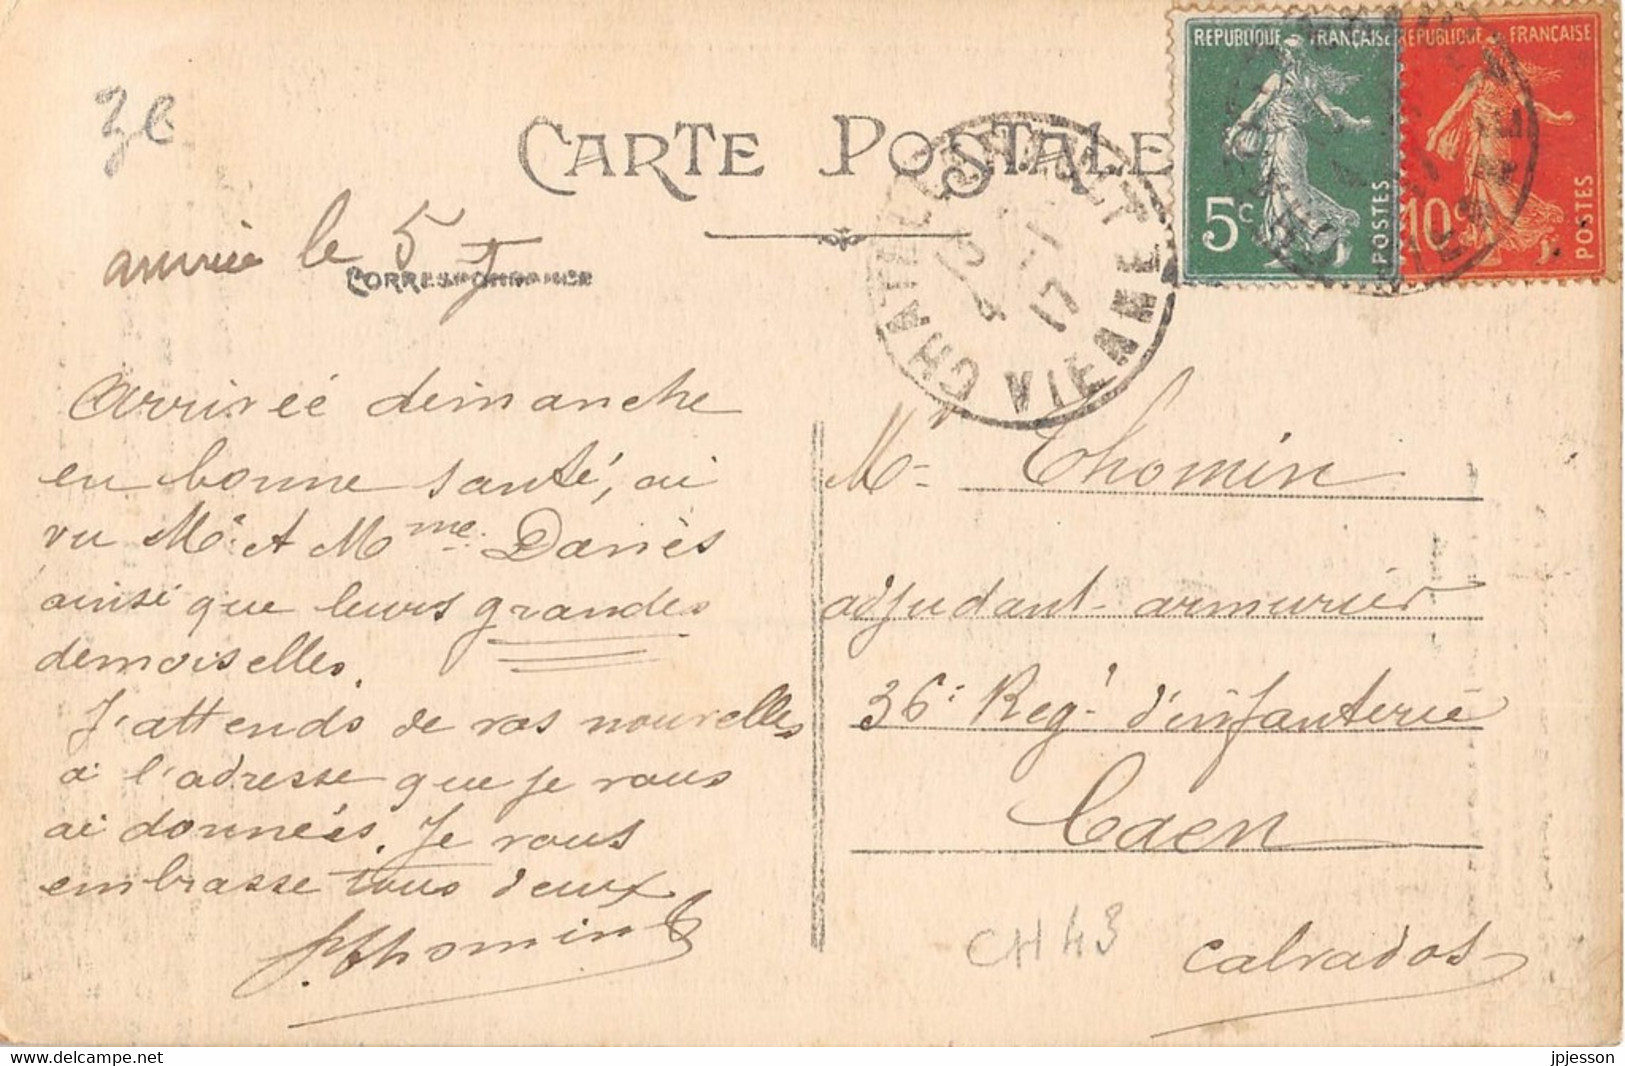 3e
CARTE POSTALE
REPUBLIQUE FRANÇAISE
5c
POSTES
REPUBLIQUE FRANÇAISE
10c
POSTES
CHATELLERAULT
4 -1
17
VIENNE
arrivée le 5
CORRESPONDANCE
Arrivée dimanche
en bonne santé, ai
vu Mr et Mme Dariès
ainsi que leurs grandes
demoiselles.
J'attends de vos nouvelles
à l'adresse que je vous
ai donnée. Je vous
embrasse tous deux
P. Thomin
Mr Thomin
adjudant-armurier
36e Regt d'infanterie
Caen
Calvados
CH 43
jpjesson